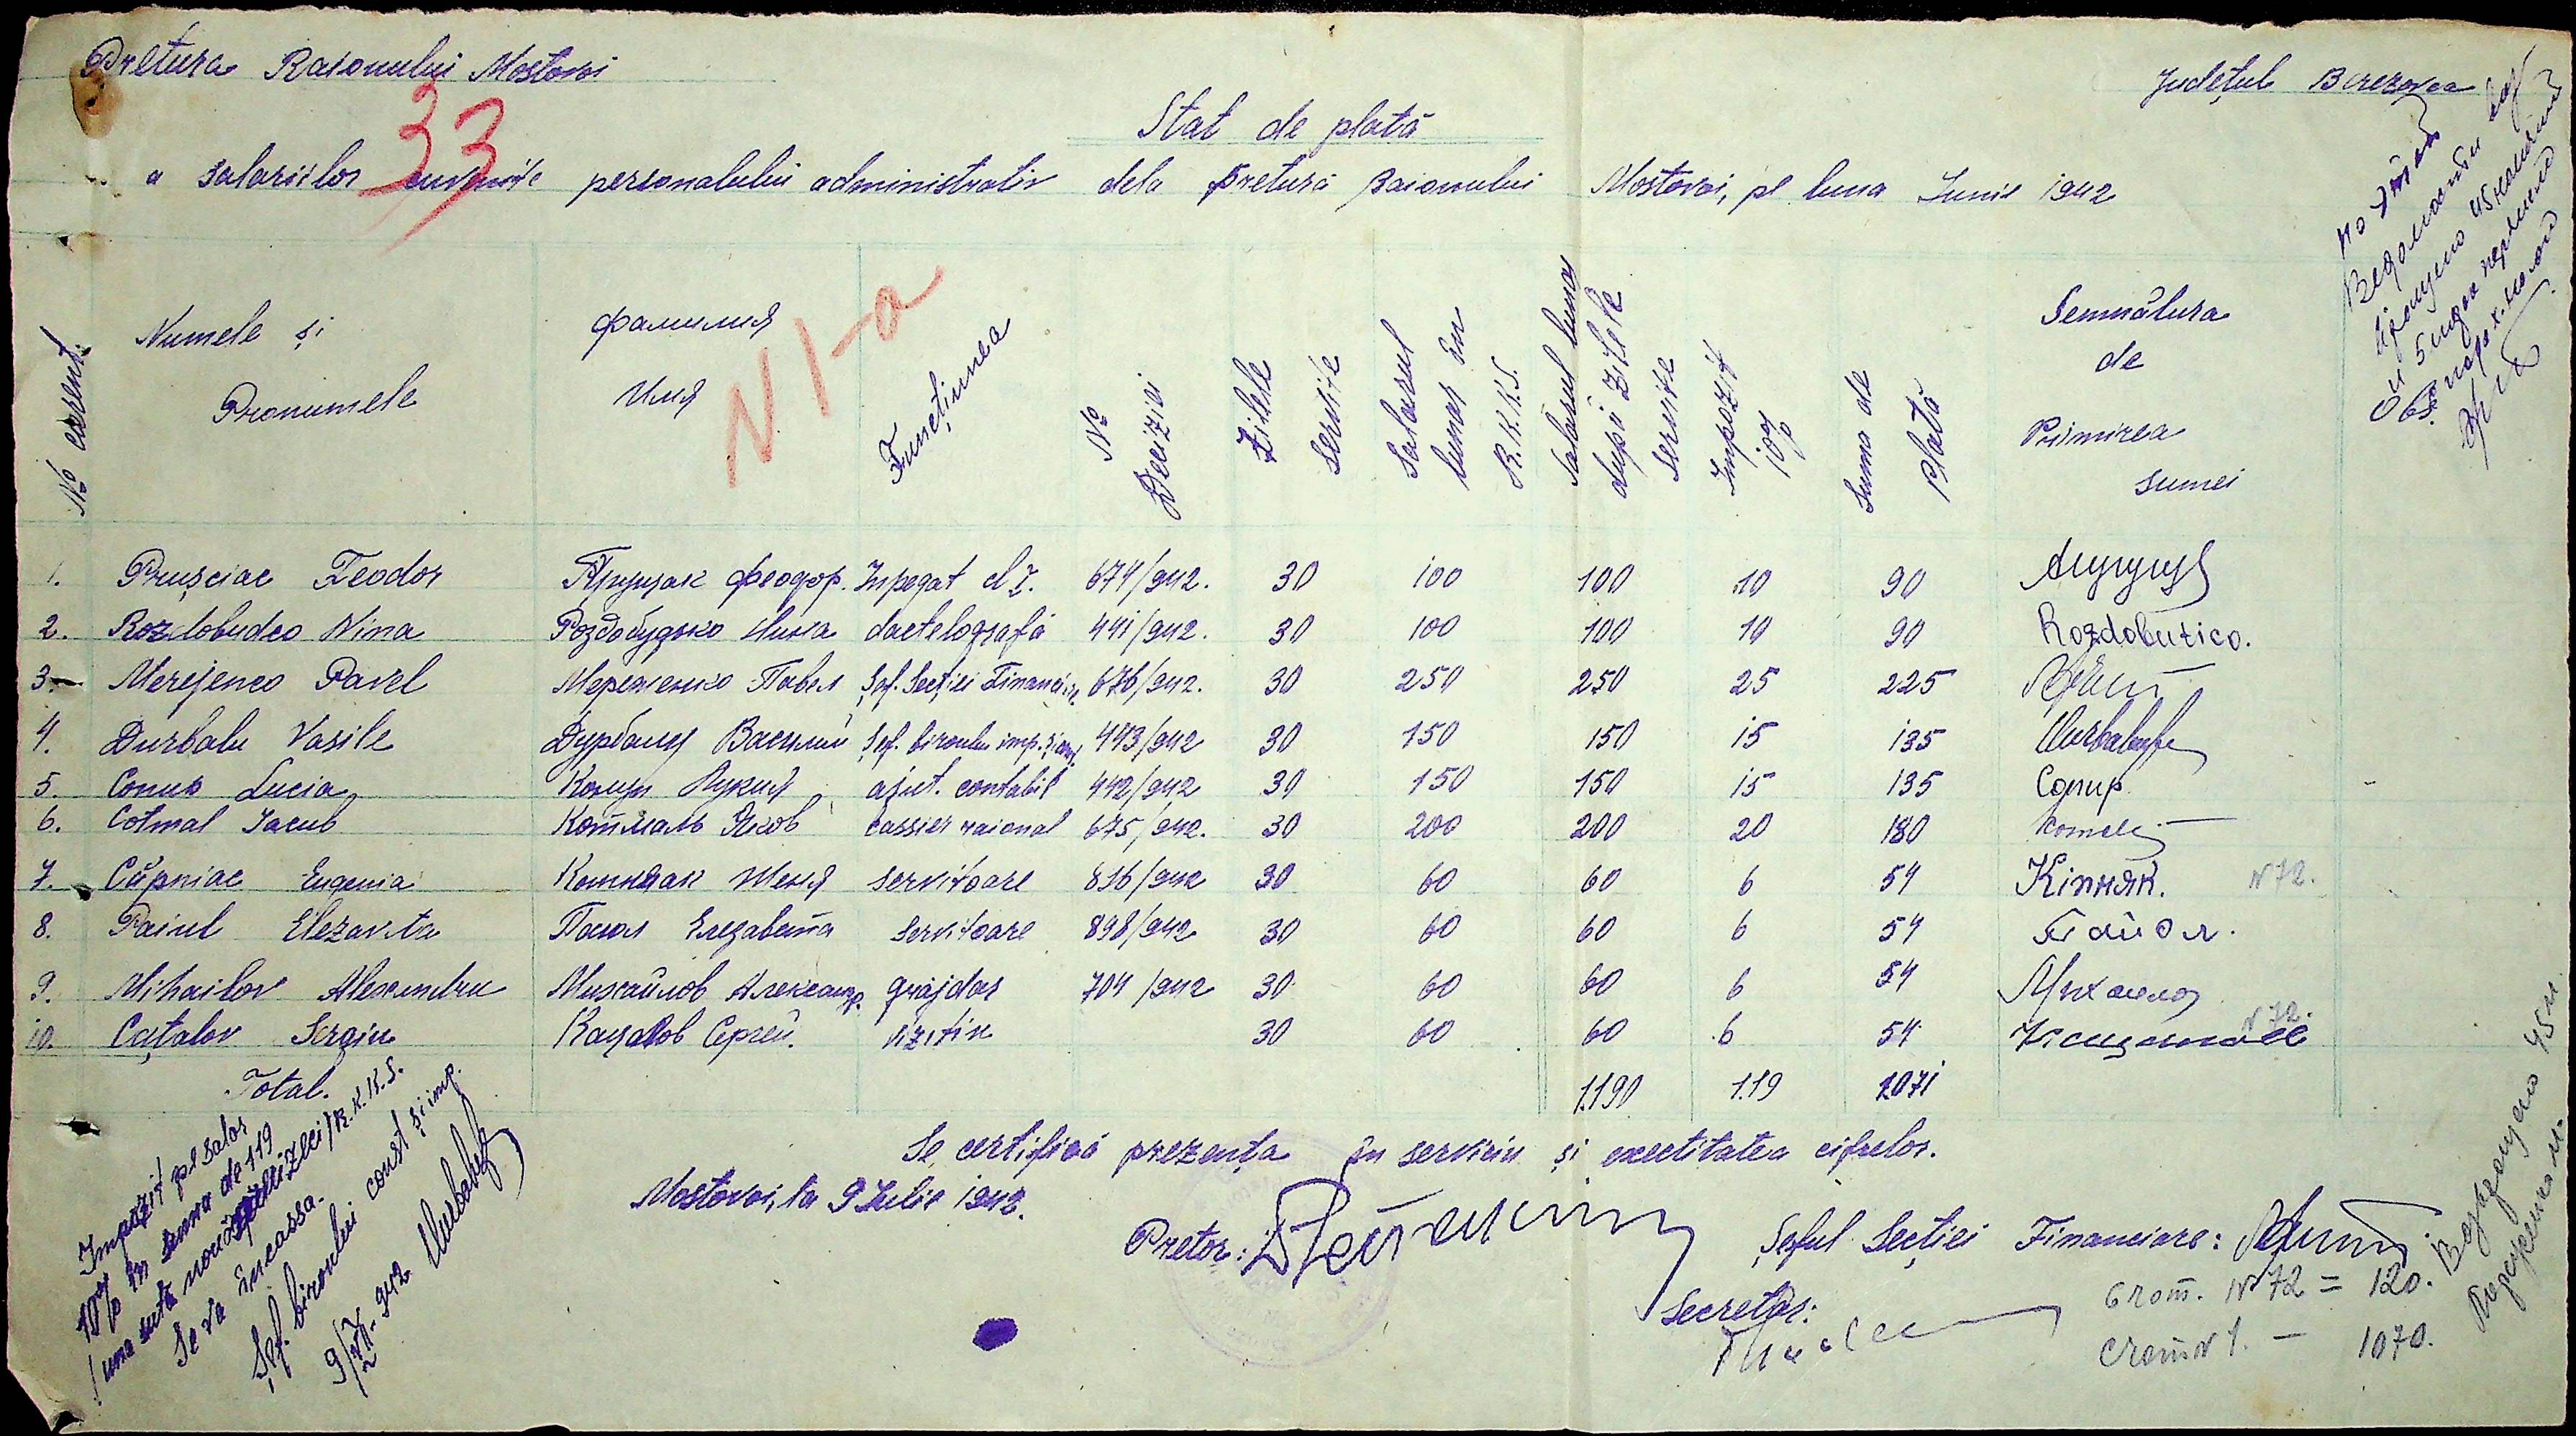 Pretura Raionului Mostovoi
Județul Berezovca
33
Stat de plată
a salariilor cuvenite personalului administrativ dela pretura Raionului Mostovoi, pe luna Iunie 1942
N 1-a
№ curent. Numele și Pronumele Фамилия Имя Funcțiunea № Deciziei Zilele servite Salarul lunar în R.K.K.S. Salarul lunar după zilele servite Impozit 10% Suma de plată Semnătura de Primirea sumei
1. Prușciac Teodor Прущак Феодор. Inpegat cl I. 674/942. 30 100 100 10 90
2. Rozdobudco Nina Роздобудько Нина dactelografă 441/942. 30 100 100 10 90 Rozdobutico.
3. Merejenco Pavel Мереженко Павел Șef. Secției Financiare 676/942. 30 250 250 25 225
4. Durbalu Vasile Дурбалу Василий Șef. biroului imp. și 443/942 30 150 150 15 135
5. Conup Lucia Конуп Лукия ajut. contabil 442/942 30 150 150 15 135 Conup
6. Cotmal Iacub Котмаль Яков cassier raional 675/942. 30 200 200 20 180
7. Cîpniac Eugenia Женя servitoare 836/942 30 60 60 6 54 Кіпняк. N 72.
8. Paiul Elezaveta Паиол Елезавета servitoare 898/942 30 60 60 6 54 Пайол.
9. Mihailov Alexandru Михайлов Александр. grăjdar 704/942 30 60 60 6 54 Михайлов
10. Cațalov Sergiu Кацалов Сергей. vizitiu 30 60 60 6 54 N 72.
Total. 1.190 119 1.071
Se certifică prezența în serviciu și exectitatea cifrelor.
Mostovoi, la 9 Iulie 1942.
Pretor:
Șeful Secției Financiare:
Secretar:
Impozit pe salar
10% în suma de 119
/una sută nouăsprezeci/ R.K.K.S.
Se va încassa.
Șef. biroului const și imp.
9/VII-942
По этой
Ведомости
45
Возвращено 45 м.
стат. N 72 = 120.
стат N 1. — 1070.